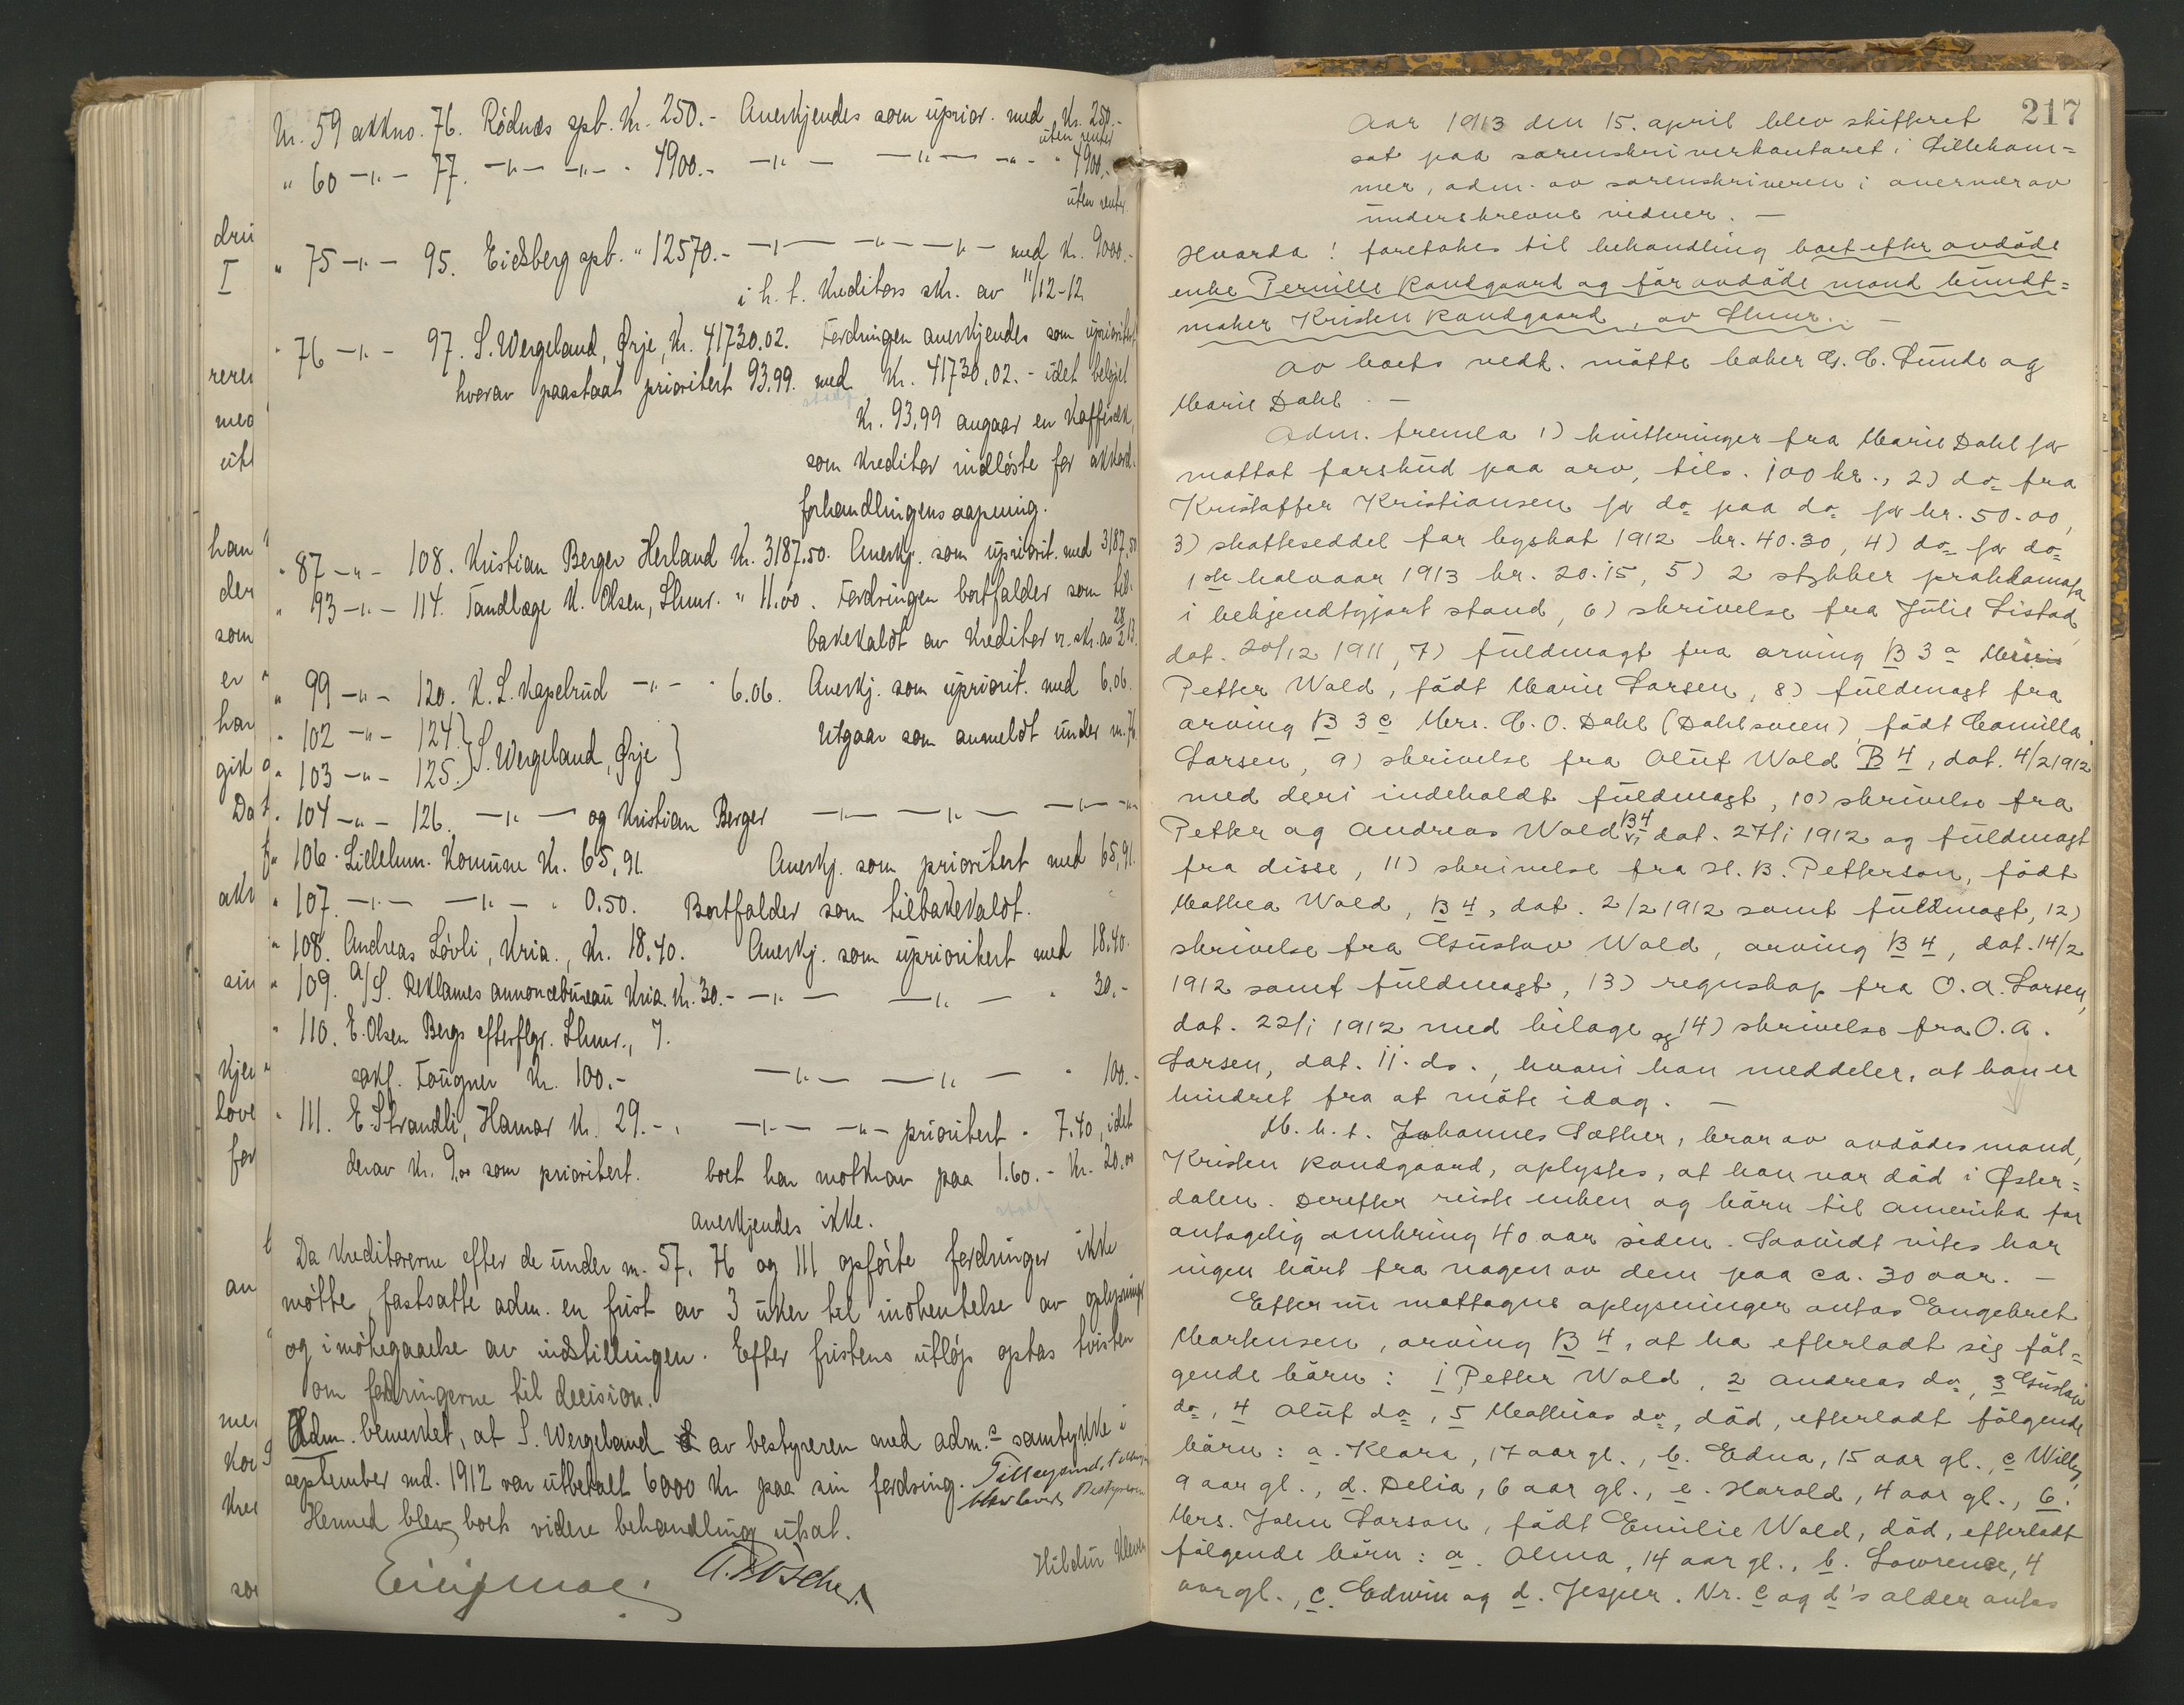 Nr. 59 akkno. 76. Rödnes spb. Kr. 250.- Anerkjendes som uprior. med Kr. 250.-
uten renter
" 60 -"- 77. -"- -"- " 4900.- -"- -"- -"- " 4900.-
uten renter
" 75 -"- 95. Eidsberg spb. " 12570.- -"- -"- -"- med Kr. 9000.-
i h. t. Kreditors skr. av 11/12-12
" 76 -"- 97. S. Wergeland, Ørje, Kr. 41730.02. Fordringen anerkjendes som uprioritert
hvorav paastaat prioritert 93.99. med Kr. 41730.02. - idet beløpet
Kr. 93.99 angaar en Kaffisæk,
som Kreditor indløste før akkord-
forhandlingens aapning.
" 87 -"- 108. Kristian Berger Herland Kr. 3187.50. Anerkj. som upriorit. med 3187.50
" 93 -"- 114. Tandlæge K. Olsen, Lhmr. " 11.00. Fordringen bortfalder som til-
bakekaldt av Kreditor v. skr. av 28/2 13.
" 99 -"- 120. K. L. Kapelrud -"- " 6.06. Anerkj. som upriorit. med 6.06.
" 102 -"- 124. } S. Wergeland, Ørje } Utgaar som anmeldt under nr. 76.
" 103 -"- 125. }
" 104 -"- 126. -"- og Kristian Berger -"- -"- -"-
" 106. Lillehm. Komune Kr. 65,91. Anerkj. som prioritert med 65,91.
" 107. -"- -"- " 0.50. Bortfalder som tilbakekaldt.
" 108. Andreas Løvli, Kria., Kr. 18.40. Anerkj. som uprioritert med 18.40.
" 109. A/S. Reklames annoncebureau Kria. Kr. 30.- -"- -"- " 30.-
" 110. E. Olsen Bergs efterflgr. Lhmr.,
sakf. Fougner Kr. 100.- -"- -"- " 100.-
" 111. E. Strandli, Hamar Kr. 29.-. -"- -"- prioritert " 7.40, idet
derav Kr. 9.00 som prioritert. boet har motkrav paa 1.60.- Kr. 20.00
anerkjendes ikke.
Da Kreditorerne efter de under nr. 57, 76 og 111 opførte fordringer ikke
møtte, fastsatte adm. en frist av 3 uker til indhentelse av oplysninger
og imøtegaaelse av indstillingen. Efter fristens utløp optas tvisten
om fordringerne til decision.
Adm. bemerket, at S. Wergeland av bestyreren med adm.s samtykke i
september md. 1912 var utbetalt 6000 Kr. paa sin fordring.
Hermed blev boets videre behandling utsat.
217
Aar 1913 den 15. april blev skifteret
sat paa sorenskriverkontoret i Lilleham=
mer, adm. av sorenskriveren i overvær av
underskrevne vidner. -
Hvorda! foretokes til behandling boet efter avdöde
enke Pernille Randgaard og för avdöde mand bundt=
maker Kristen Randgaard, av Lhmr. -
Av boets vedk. mötte baker G. C. Lunde og
Marie Dahl. -
Adm. fremla 1) kvitteringer fra Marie Dahl for
mottat forskud paa arv, tils. 100 kr., 2) do= fra
Kristoffer Kristiansen for do= paa do= for kr. 50.00,
3) skatteseddel for byskat 1912 kr. 40.30, 4) do= for do=
1ste halvaar 1913 kr. 20.15, 5) 2 stykker proklama
i bekjendtgjort stand, 6) skrivelse fra Julie Listad,
dat. 20/12 1911, 7) fuldmagt fra arving B 3 a
Petter Wold, födt Marie Larsen, 8) fuldmagt fra
arving B 3 c Mrs. C. O. Dahl (Dahlsveen) födt Camilla
Larsen, 9) skrivelse fra Oluf Wold B 4, dat. 4/2 1912
med deri indeholdt fuldmagt, 10) skrivelse fra
Petter og Andreas Wold B 4, dat. 27/1 1912 og fuldmagt
fra disse, 11) skrivelse fra H. B. Petterson, födt
Mathea Wold, B 4, dat. 2/2 1912 samt fuldmagt, 12)
skrivelse fra Gustav Wold, arving B 4, dat. 14/2
1912 samt fuldmagt, 13) regnskap fra O. A. Larsen,
dat. 22/1 1912 med bilage og 14) skrivelse fra O. A.
Larsen, dat. 11. ds., hvori han meddeler, at han er
hindret fra at möte idag. -
M. h. t. Johannes Sæther, bror av avdödes mand,
Kristen Randgaard, oplystes, at han var död i Øster=
dalen. Derefter reiste enken og börn til Amerika for
antagelig omkring 40 aar siden. Saavidt vites har
ingen hört fra nogen av dem paa ca. 30 aar. -
Efter nu mottagne oplysninger antas Engebret
Martensen, arving B 4, at ha efterladt sig föl=
gende börn: 1 Petter Wold, 2 Andreas do=, 3 Gustav
do=, 4 Oluf do=, 5 Mathias do=, död, efterladt fölgende
börn: a. Klara, 17 aar gl., b. Edna, 15 aar gl., c Willy,
9 aar gl., d. Delia, 6 aar gl., e. Harold, 4 aar gl., 6.
Mrs. John Larson, födt Emilie Wold, död, efterladt
fölgende börn: a. Alma, 14 aar gl., b. Lawrence, 4
aar gl., c. Edwin og d. Jesper. Nr. c og d's alder antas